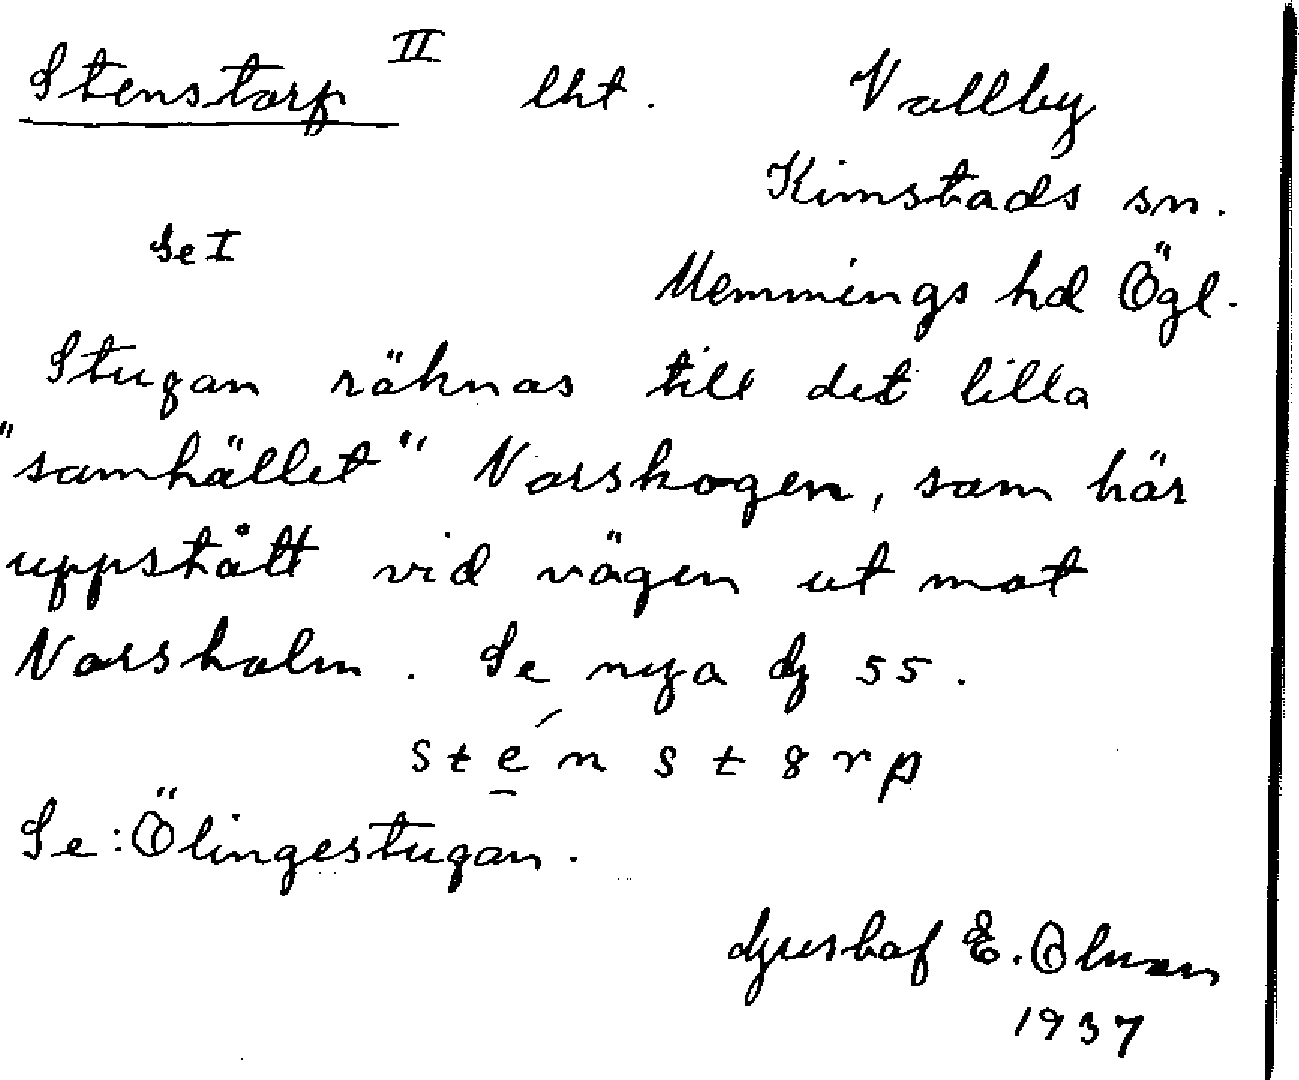 Stenstorp II lht. Vallby
Kimstads sn.
Se I
Memmings hd Ögl.
Stugan räknas till det lilla
"samhället" Norskogen, som här
uppstått vid vägen ut mot
Norsholm. Se nya dg 55.
sténstörp
Se: Ölingestugan.
E. Olman
1937